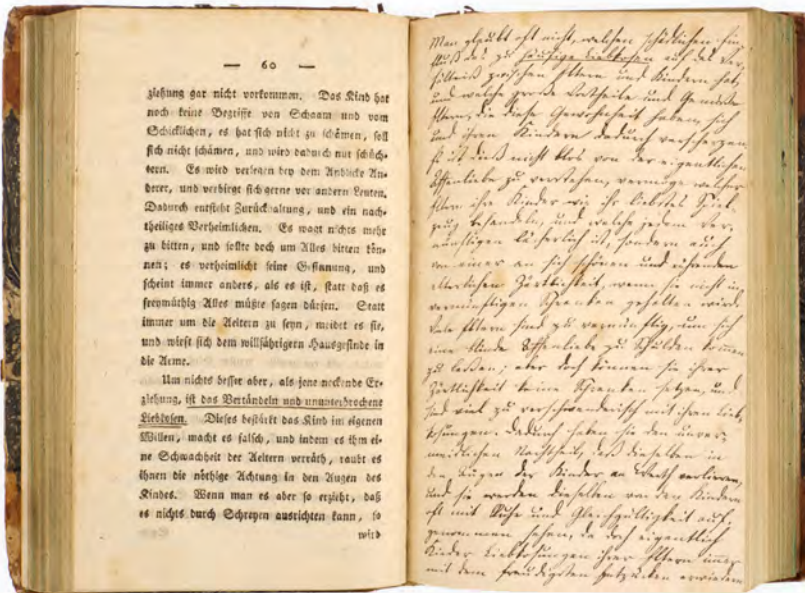 — 60 —
ziehung gar nicht vorkommen. Das Kind hat
noch keine Begriffe von Schaam und vom
Schicklichen, es hat sich nicht zu schämen, soll
sich nicht schämen, und wird dadurch nur schüch-
tern. Es wird verlegen bey dem Anblicke An-
derer, und verbirgt sich gerne vor andern Leuten.
Dadurch entsteht Zurückhaltung, und ein nach-
theiliges Verheimlichen. Es wagt nichts mehr
zu bitten, und sollte doch um Alles bitten kön-
nen; es verheimlicht seine Gesinnung, und
scheint immer anders, als es ist, statt daß es
freymüthig Alles müßte sagen dürfen. Statt
immer um die Aeltern zu seyn, meidet es sie,
und wirft sich dem willfährigern Hausgesinde in
die Arme.
Um nichts besser aber, als jene neckende Er-
ziehung, ist das Vertändeln und ununterbrochene
Liebkosen. Dieses bestärkt das Kind im eigenen
Willen, macht es falsch, und indem es ihm ei-
ne Schwachheit der Aeltern verräth, raubt es
ihnen die nöthige Achtung in den Augen des
Kindes. Wenn man es aber so erzieht, daß
es nichts durch Schreyen ausrichten kann, so
wird
Man glaubt oft nicht, welchen schädlichen Ein-
fluß das zu häufige Liebkosen auf das Ver-
hältniß zwischen Eltern und Kindern hat,
und welche große Vortheile und Genüsse
Eltern, die diese Gewohnheit haben, sich
und ihren Kindern dadurch verscherzen.
Es ist dieß nicht blos von der eigentlichen
Affenliebe zu verstehen, vermöge welcher
Eltern ihre Kinder wie ihr liebstes Spiel-
zeug behandeln, und welche jedem Ver-
nünftigen lächerlich ist, sondern auch
von einer an sich schönen und rührenden
elterlichen Zärtlichkeit, wenn sie nicht in
vernünftigen Schranken gehalten wird.
Viele Eltern sind zu vernünftig, um sich
eine blinde Affenliebe zu Schulden kommen
zu laßen; aber doch können sie ihrer
Zärtlichkeit keine Schranken setzen, und
sind viel zu verschwenderisch mit ihren Lieb-
kosungen. Dadurch haben sie den unver-
meidlichen Nachtheil, daß dieselben in
den Augen der Kinder an Werth verlieren,
und sie werden dieselben von den Kindern
oft mit Ruhe und Gleichgültigkeit auf-
genommen sehen, da doch eigentlich
Kinder Liebkosungen ihrer Eltern immer
mit dem freudigsten Entzücken erwiedern